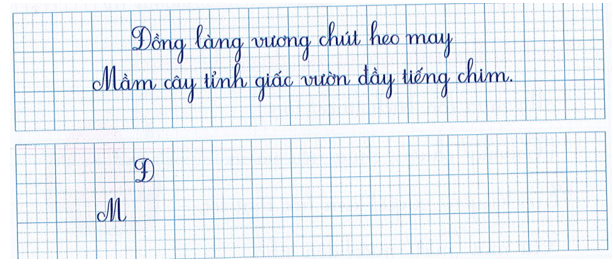 Đồng làng vương chút heo may
Mầm cây tỉnh giấc vườn đầy tiếng chim.
Đ
M